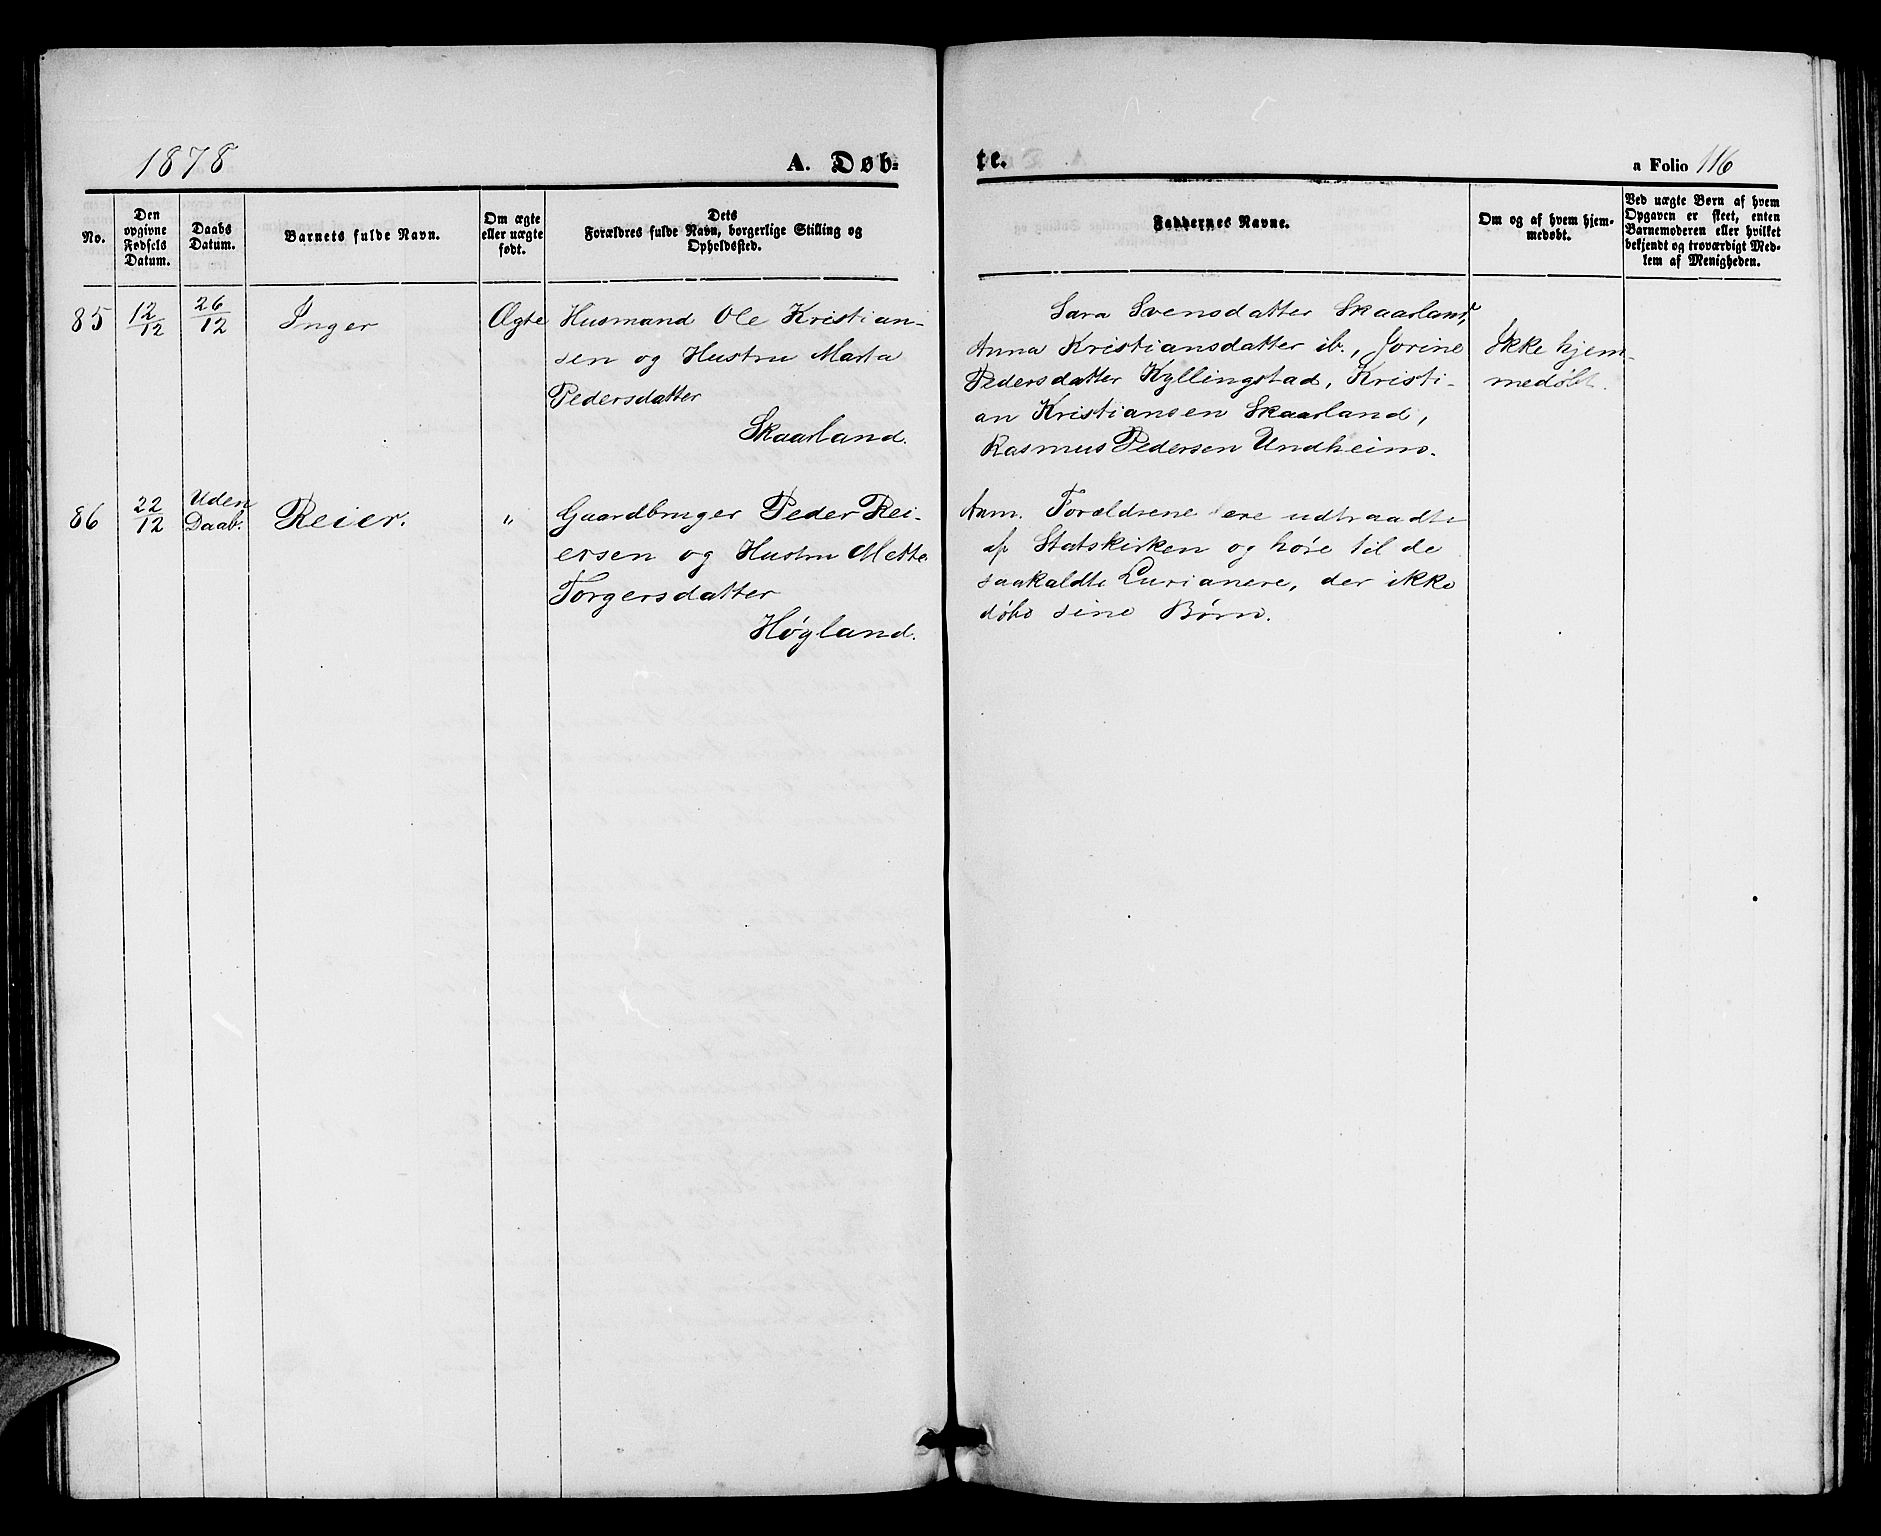 1878
A. Døb-
te.
a Folio 116
No.
Den
opgivne
Fødsels
Datum.
Daabs
Datum.
Barnets fulde Navn.
Om ægte
eller uægte
født.
Dets
Forældres fulde Navn, borgerlige Stilling og
Opholdssted.
Faddernes Navne.
Om og af hvem hjem-
medøbt.
Ved uægte Børn af hvem
Opgaven er skeet, enten
Barnemoderen eller hvilket
bekjendt og troværdigt Med-
lem af Menigheden.
85 12/12 26/12 Inger Ægte
Husmand Ole Kristian-
sen og Hustru Marta
Pedersdatter
Skaarland.
Sara Svensdatter Skaarland,
Anna Kristiansdatter ib., Jorine
Pedersdatter Kyllingstad, Kristi-
an Kristiansen Skaarland,
Rasmus Pedersen Undheim.
Ikke hjem-
medøbt.
86 22/12 Uden
Daab. Reier. "
Gaardbruger Peder Rei-
ersen og Hustru Mette
Torgersdatter
Høgland.
Anm. Forældrene ere udtraadte
af Statskirken og høre til de
saakaldte Lurianere, der ikke
døbe sine Børn.